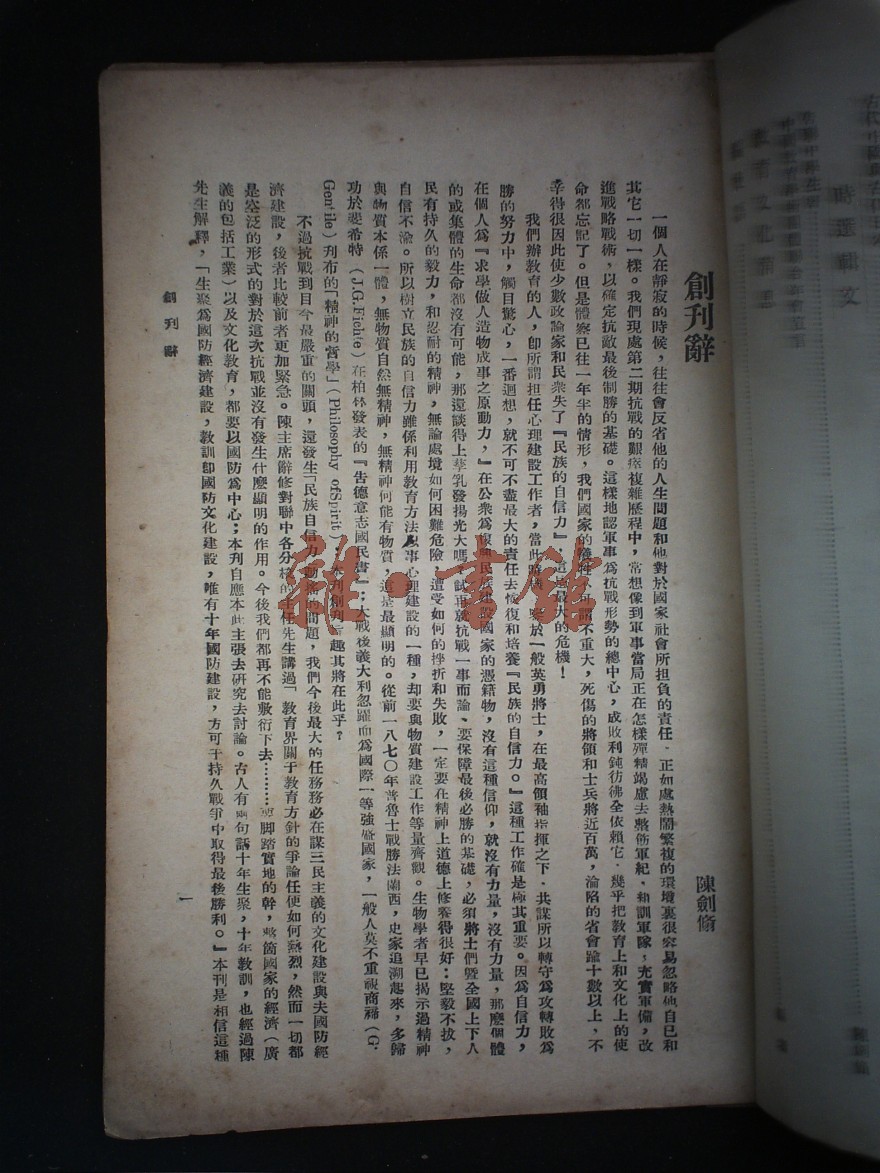 創刊辭
陳劍翛
一個人在靜寂的時候，往往會反省他的人生問題和他對於國家社會所担負的責任．正如處熱鬧繁複的環境裏很容易忽略他自己和
其它一切一樣。我們現處第二期抗戰的艱複雜歷程中，常想像到軍事當局正在怎樣殫精竭慮去整飭軍紀．訓軍隊，充實軍備，改
進戰略戰術，以確定抗敵最後制勝的基礎。這樣地認軍事爲抗戰形勢的總中心，成敗利鈍彷彿全依賴它．幾乎把教育上和文化上的使
命都忘記了。但是體察已往一年半的情形，我們國家的犧牲可謂不重大，死傷的將領和士兵將近百萬，淪陷的省會踰十數以上，不
幸得很因此使少數政論家和民衆失了『民族的自信力』這是最大的危機！
我們辦教育的人，卽所謂担任心理建設工作者，當此時於一般英勇將士，在最高領袖指揮之下．共謀所以轉守爲攻轉敗爲
勝的努力中，觸目驚心，一番迴想，就不可不盡最大的責任去恢復和培養『民族的自信力。』這種工作確是極其重要。因爲自信力，
在個人爲『求學做人造物成事之原動力，』在公衆爲復興民族建設國家的憑籍物，沒有這種信仰，就沒有力量，沒有力量，那麽個體
的或集體的生命都沒有可能，那還談得上孳乳發揚光大嗎？試再就抗戰一事而論、要保障最後必勝的基礎，必須將士們暨全國上下人
民有持久的毅力，和忍耐的精神，無論處境如何困難危險，遭受如何的挫折和失敗，一定要在精神上道德上修養得很好：堅毅不拔，
自信不渝。所以樹立民族的自信力雖係利用教育方法從事心理建設的一種，却要與物質建設工作等量齊觀。生物學者早已揭示過精神
與物質本係一體，無物質自然無精神，無精神何能有物質，這是最顯明的。從前一八七〇年普魯士戰勝法蘭西，史家追溯起來，多歸
功於斐希特（J.G.Fichte）在柏林發表的『告德意志國民書』，大戰後義大利忽躍而爲國際一等強盛國家，一般人莫不重視商福（G.
Gentile）刋布的「精神的哲學」（Philosophy of Spirit）；本刊創刊旨趣其將在此乎？
不過抗戰到目今最嚴重的關頭，還發生「民族自信力」動搖的問題，我們今後最大的任務務必在謀三民主義的文化建設與夫國防經
濟建設，後者比較前者更加緊急。陳主席辭修對聯中各分校的主任先生講過「教育界關于教育方針的爭論任便如何熱烈，然而一切都
是空泛的形式的對於這次抗戰並沒有發生什麽顯明的作用。今後我們都再不能敷衍下去………要脚踏實地的幹，整箇國家的經濟（廣
義的包括工業）以及文化教育，都要以國防爲中心；本刊自應本此主張去研究去討論。古人有兩句話十年生聚，十年教訓，也經過陳
先生解釋，「生聚爲國防經濟建設，教訓卽國防文化建設，唯有十年國防建設，方可于持久戰爭中取得最後勝利。』本刊是相信這種
創刊辭
一
雜·書館